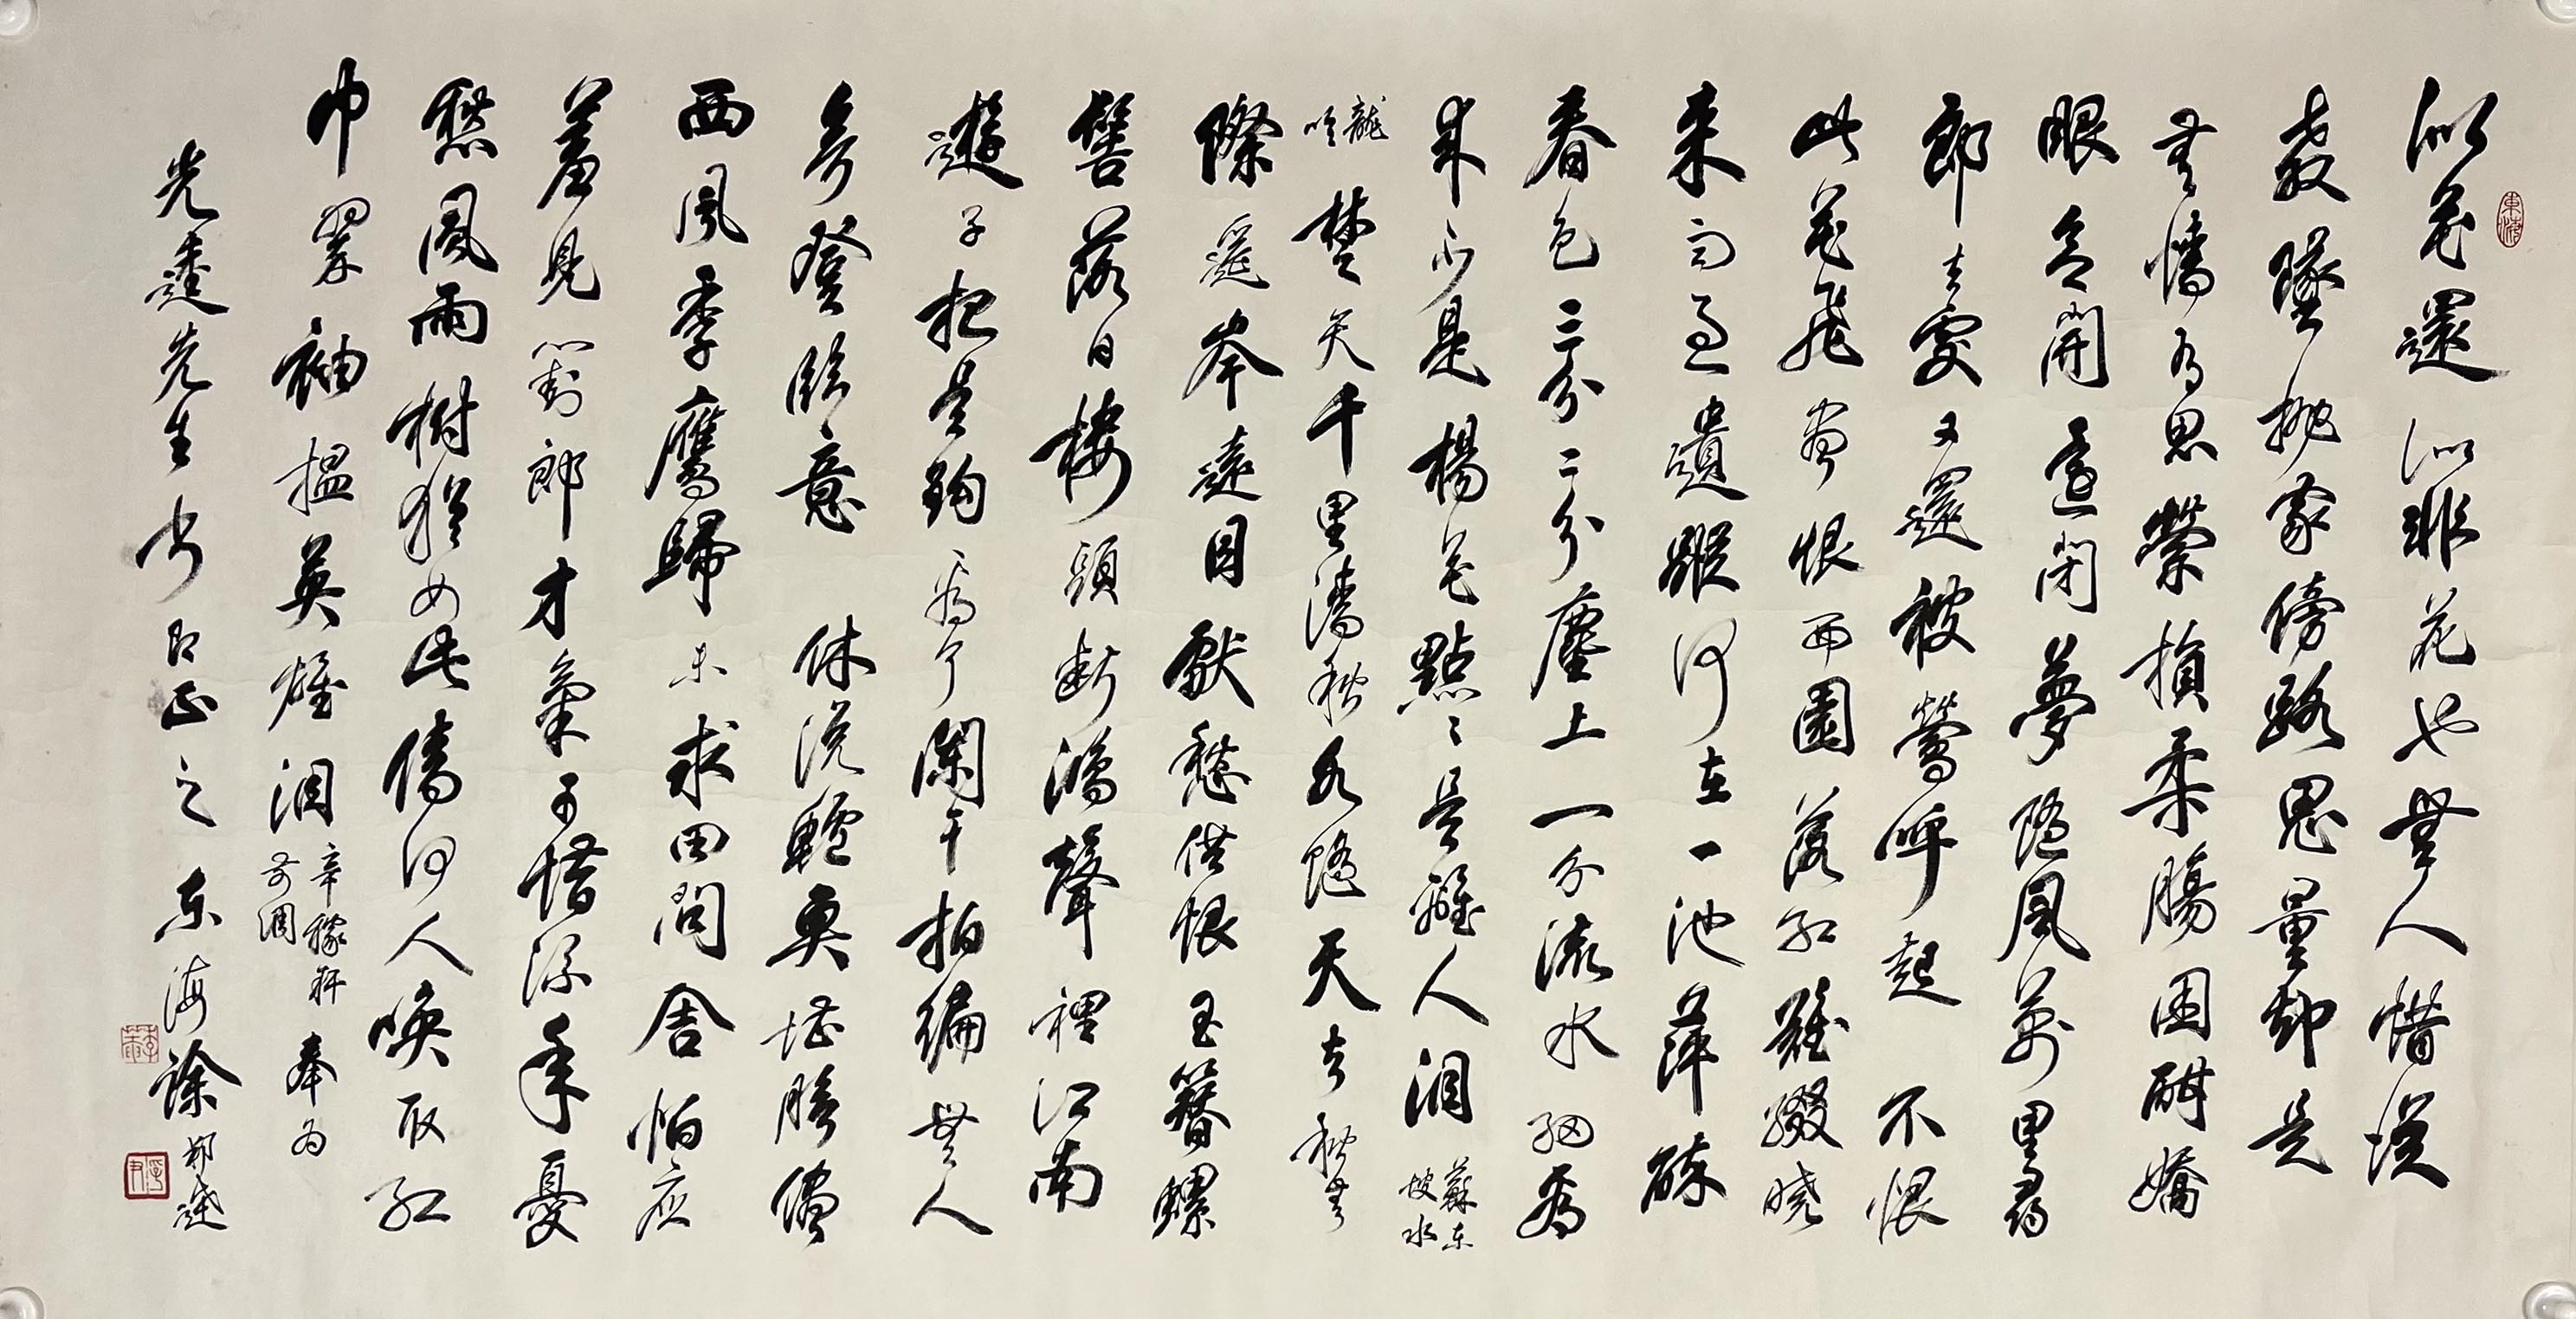 似花還似非花也無人惜從
教墜拋家傍路思量卻是
無情有思縈損柔腸困酣嬌
眼欲開還閉夢隨風萬里尋
郎去處又還被鶯呼起 不恨
此花飛盡恨西園落紅難綴曉
來雨過遺蹤何在一池萍碎
春色三分二分塵土一分流水細看
來不是楊花點〻是離人淚 蘇東坡水
龍吟 楚天千里清秋水隨天去秋無
際遙岑遠目獻愁供恨玉簪螺
髻落日樓頭斷鴻聲裡江南
遊子把吳鉤看了闌干拍編無人
會登臨意 休說鱸魚堪膾儘
西風季鷹歸未求田問舍怕應
羞見劉郎才氣可惜流年憂
愁風雨樹猶如此倩何人喚取紅
巾翠袖搵英雄淚 辛稼軒前調 奉為
光逵先生 即正之 東海徐邦達